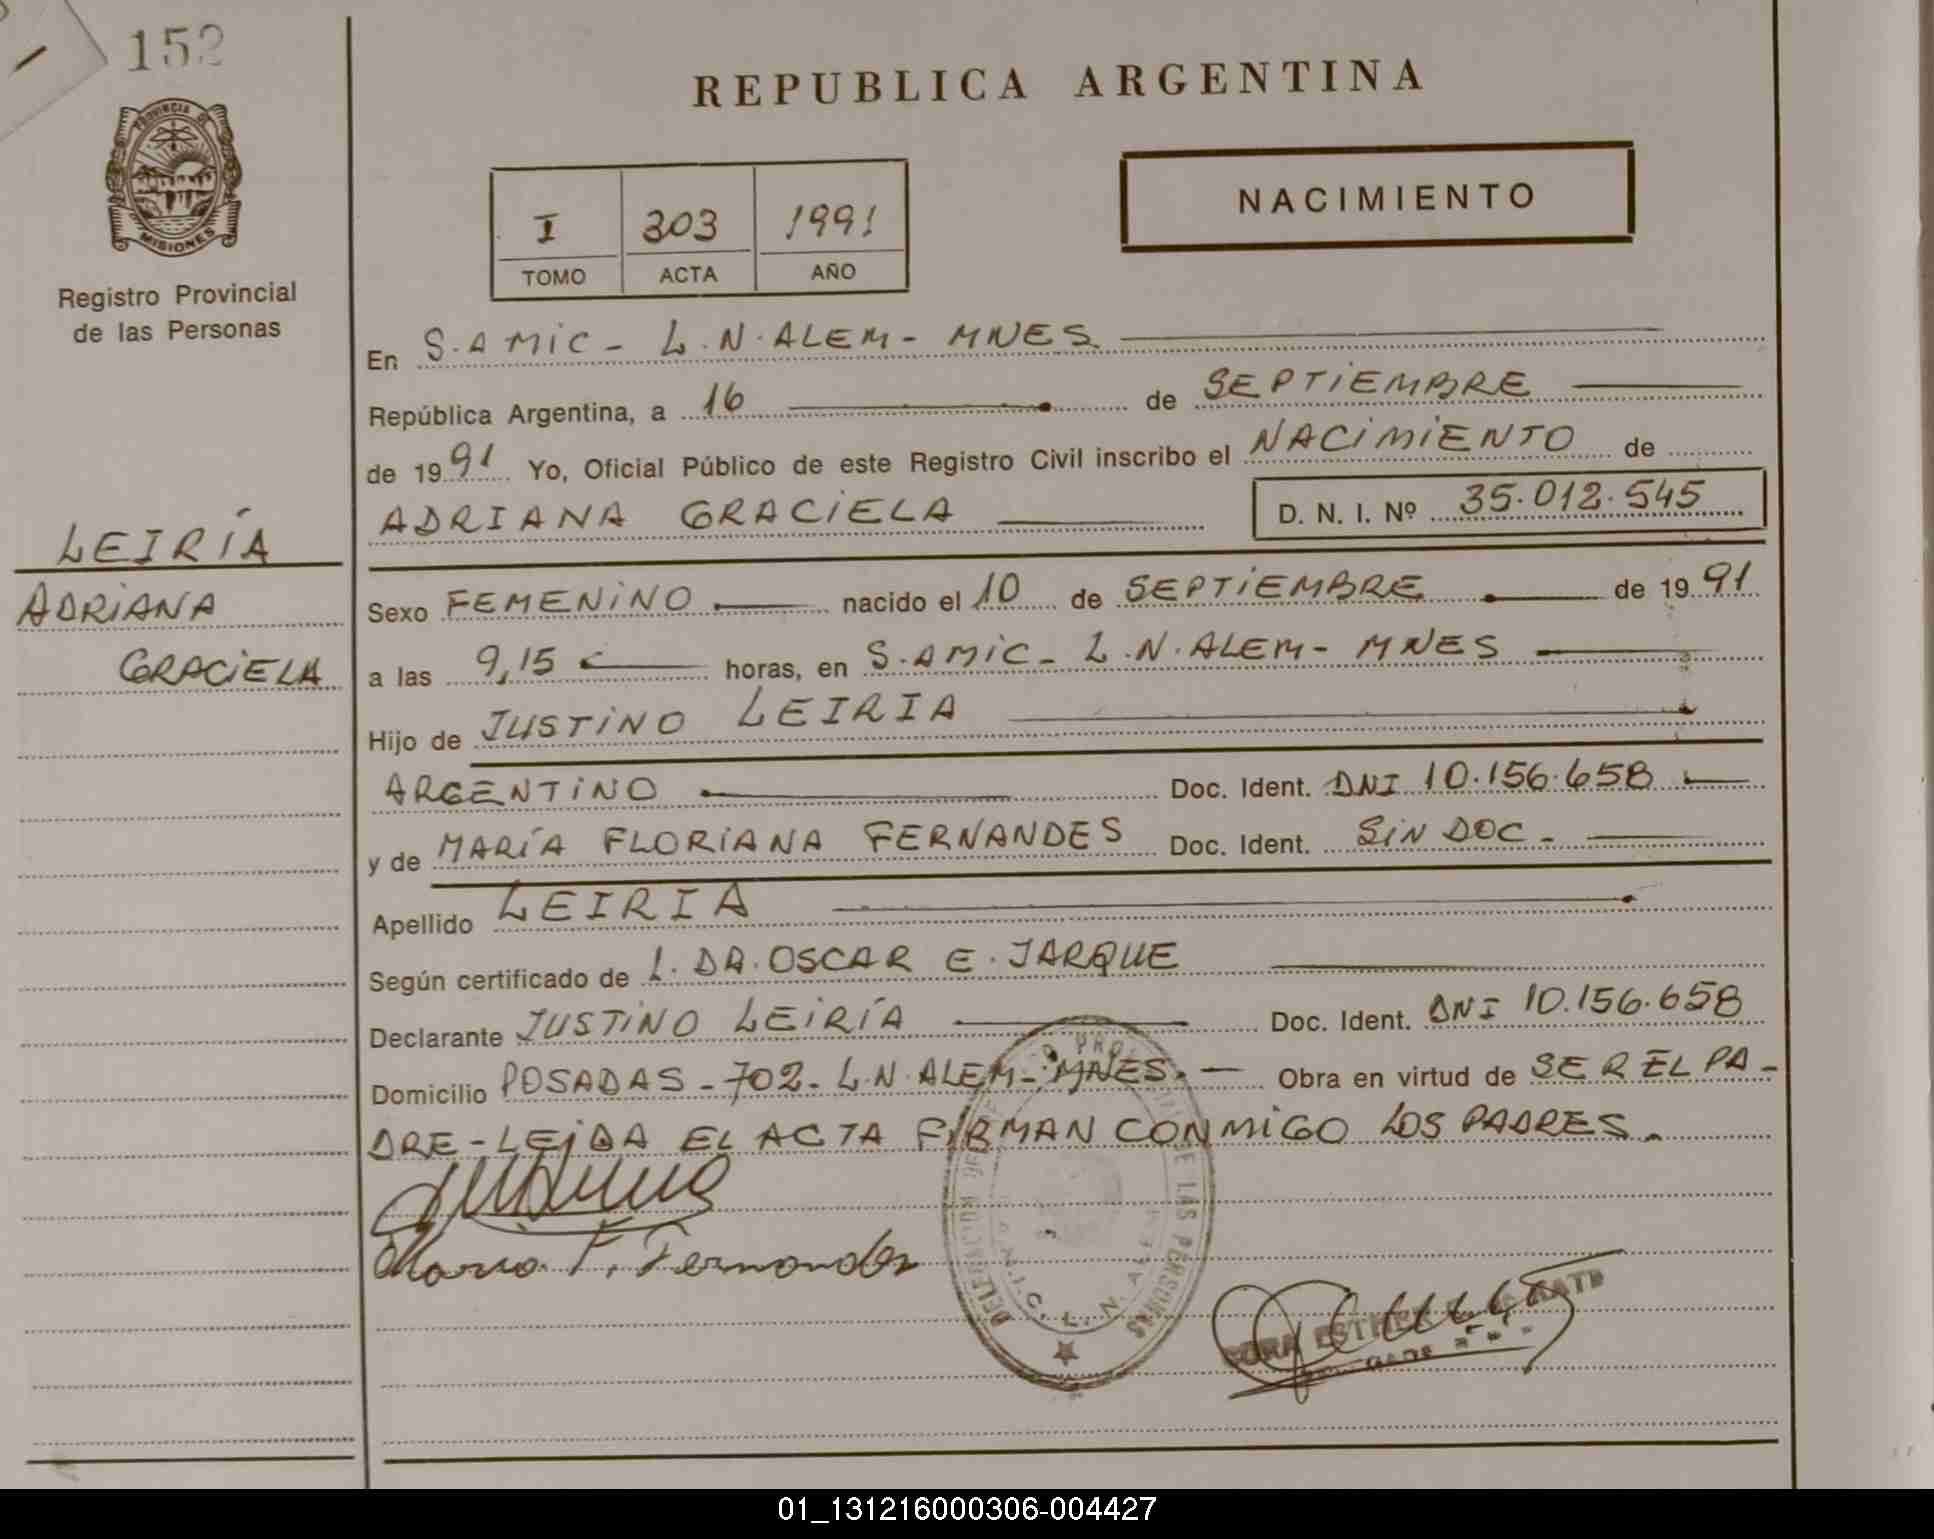 152
PROVINCIA DE
MISIONES
Registro Provincial
de las Personas
LEIRÍA
ADRIANA
GRACIELA
REPUBLICA ARGENTINA
I 303 1991
TOMO ACTA AÑO
NACIMIENTO
En S.AMIC - L.N.ALEM - MNES
República Argentina, a 16 de SEPTIEMBRE
de 1991 Yo, Oficial Público de este Registro Civil inscribo el NACIMIENTO de
ADRIANA GRACIELA D. N. I. Nº 35.012.545
Sexo FEMENINO nacido el 10 de SEPTIEMBRE de 1991
a las 9,15 horas, en S.AMIC - L.N.ALEM - MNES
Hijo de JUSTINO LEIRIA
ARGENTINO Doc. Ident. DNI 10.156.658
y de MARÍA FLORIANA FERNANDES Doc. Ident. SIN DOC.-
Apellido LEIRIA
Según certificado de L. DA. OSCAR E. JARQUE
Declarante JUSTINO LEIRÍA Doc. Ident. DNI 10.156.658
Domicilio POSADAS - 702 - L.N.ALEM - MNES.- Obra en virtud de SER EL PA-
DRE - LEIDA EL ACTA FIRMAN CONMIGO LOS PADRES.
Maria F. Fernandes
DE LAS PERSONAS
L. N. ALEM
ESTHER
01_131216000306-004427